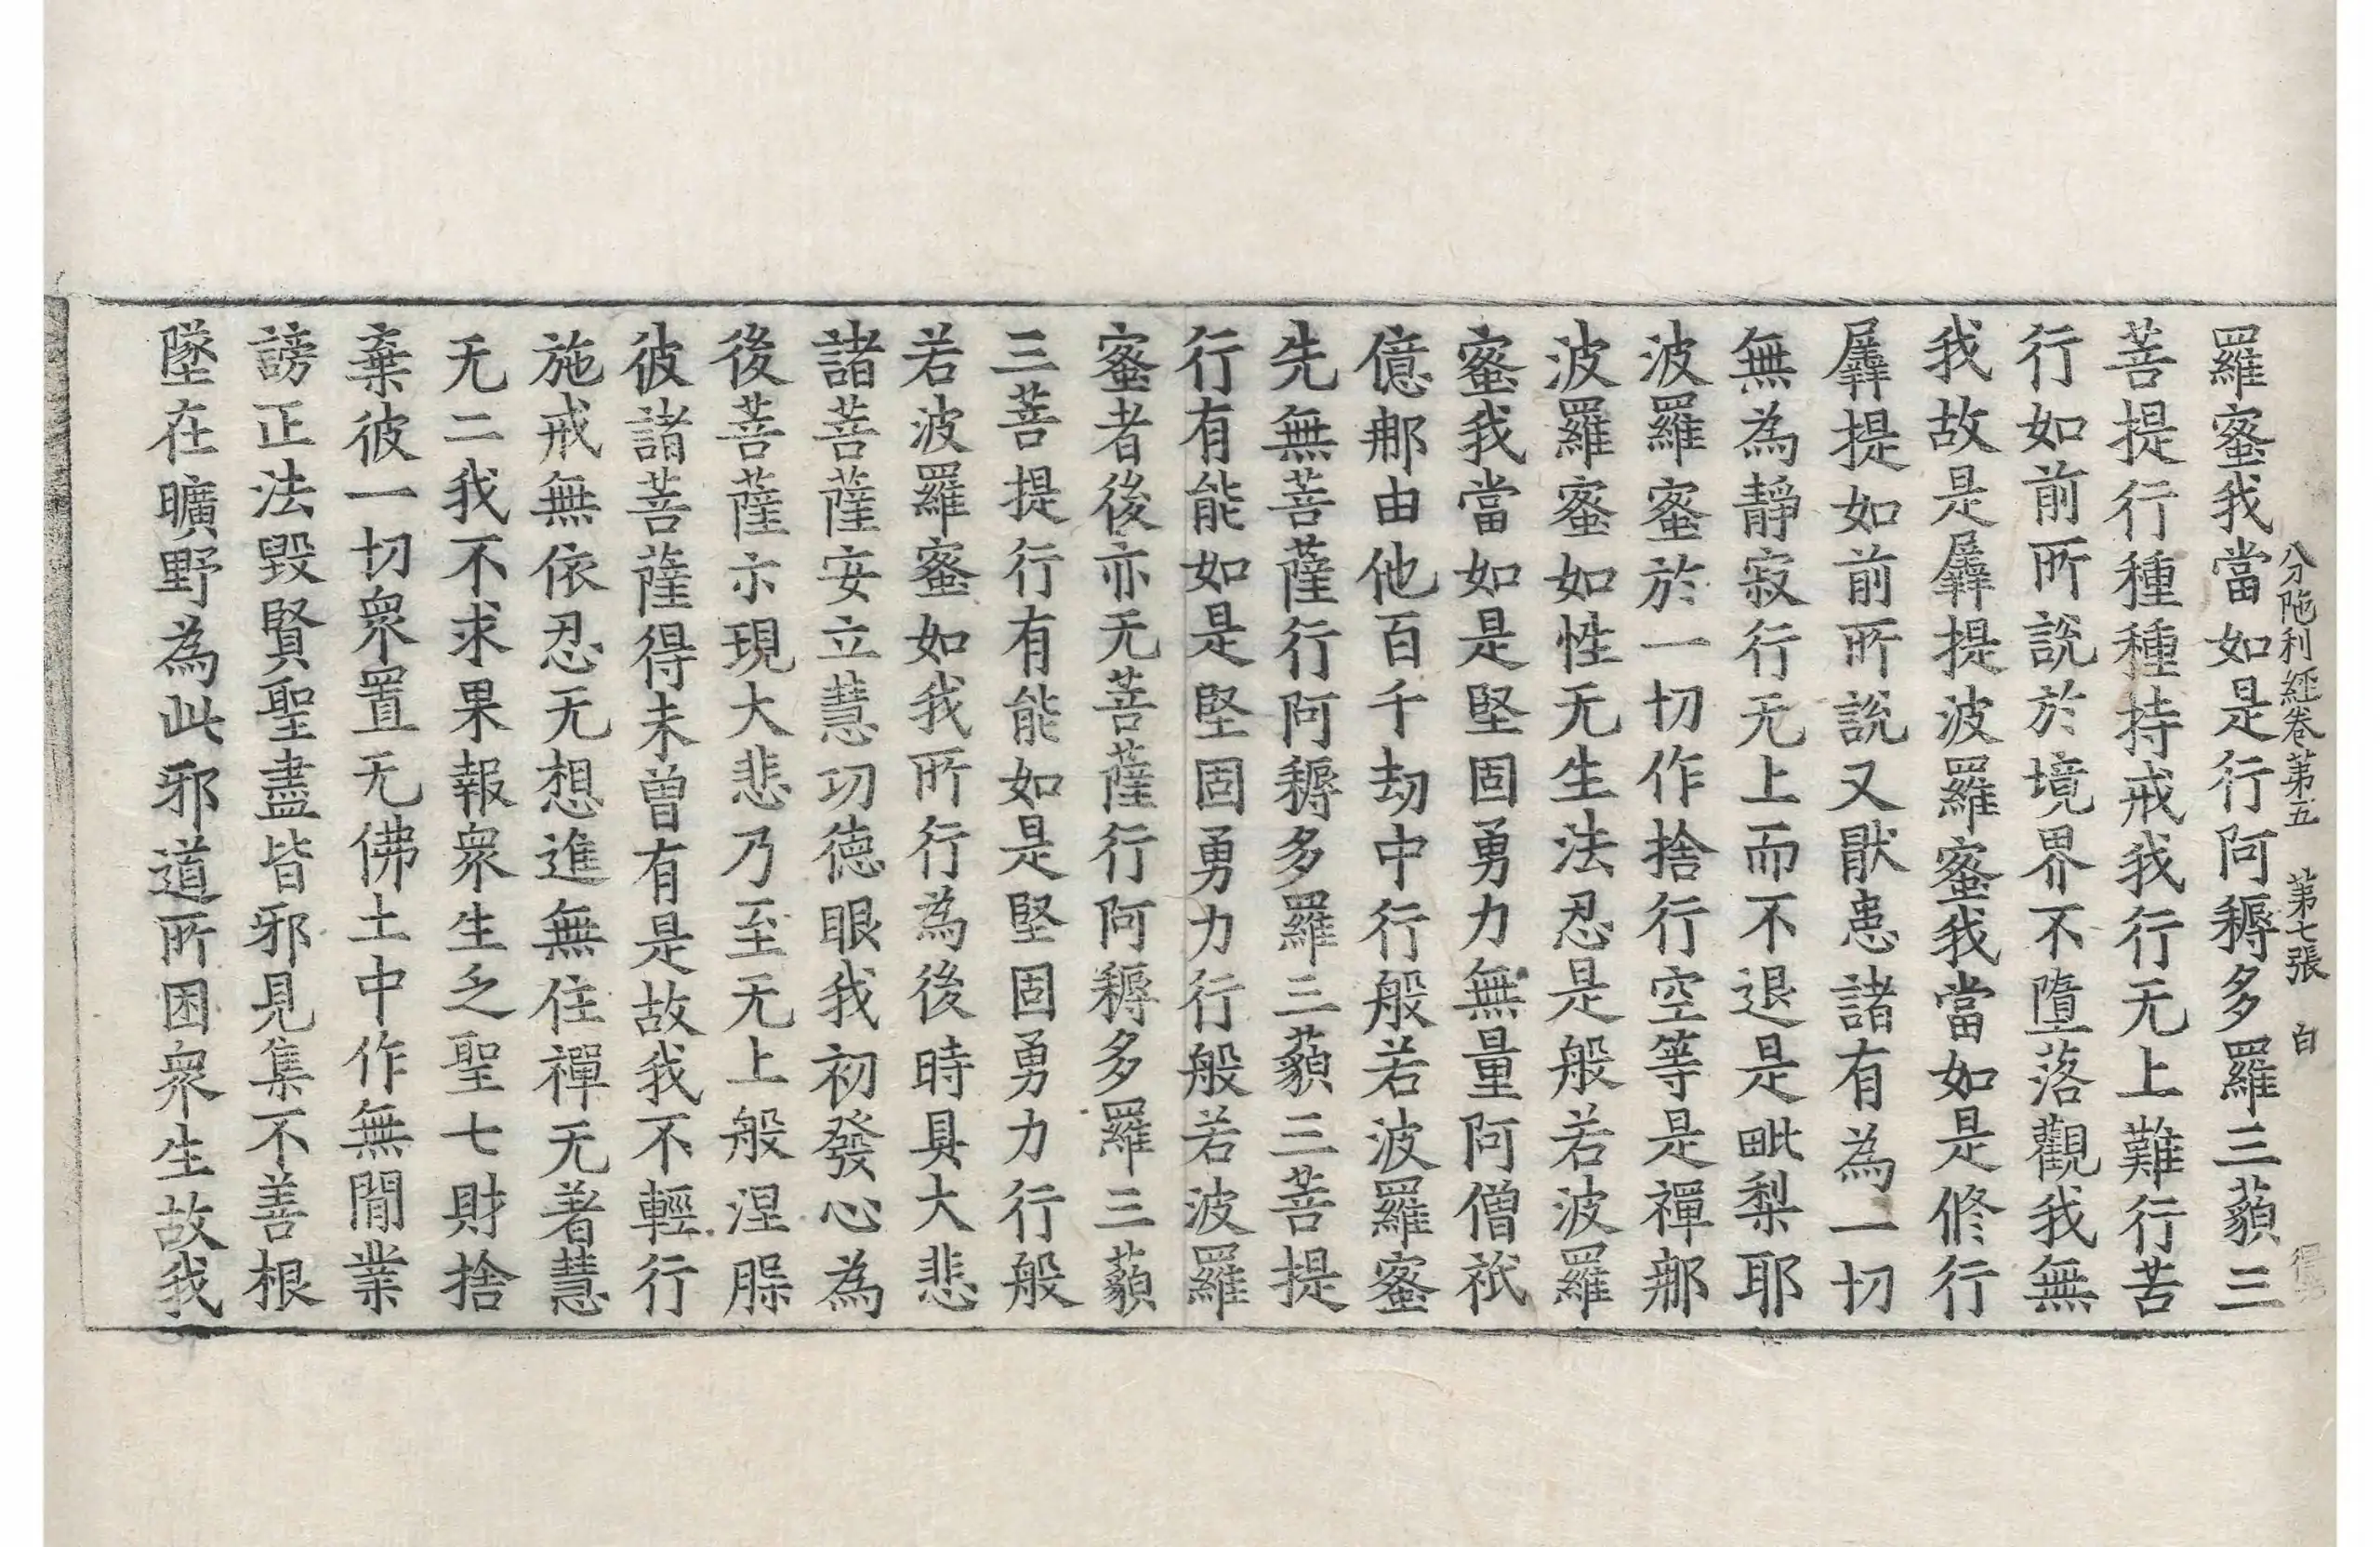 分陁利經卷第五　第七張　白
羅蜜我當如是行阿耨多羅三藐三
菩提行種種持戒我行无上難行苦
行如前所說於境界不墮落觀我無
我故是羼提波羅蜜我當如是修行
羼提如前所說又猒患諸有為一切
無為靜寂行无上而不退是毗梨耶
波羅蜜於一切作捨行空等是禪那
波羅蜜如性无生法忍是般若波羅
蜜我當如是堅固勇力無量阿僧祇
億那由他百千劫中行般若波羅蜜
先無菩薩行阿耨多羅三藐三菩提
行有能如是堅固勇力行般若波羅
蜜者後亦无菩薩行阿耨多羅三藐
三菩提行有能如是堅固勇力行般
若波羅蜜如我所行為後時具大悲
諸菩薩安立慧功德眼我初發心為
後菩薩示現大悲乃至无上般涅槃
彼諸菩薩得未曾有是故我不輕行
施戒無依忍无想進無住禪无著慧
无二我不求果報衆生乏聖七財捨
棄彼一切衆置无佛土中作無閒業
謗正法毀賢聖盡皆邪見集不善根
墜在曠野為此邪道所困衆生故我